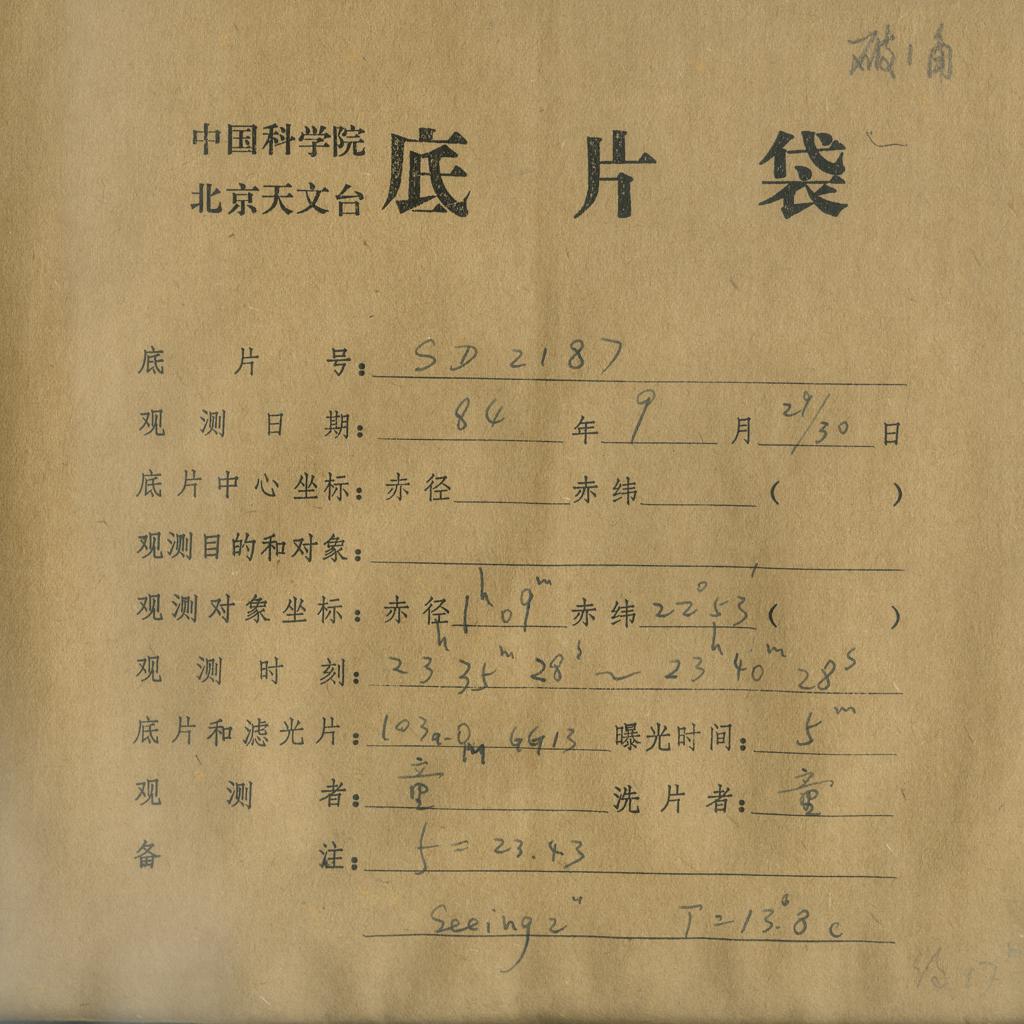 破1角
中国科学院
北京天文台
底片袋
底片号：SD 2187
观测日期：84年9月29/30日
底片中心坐标：赤径 赤纬 （ ）
观测目的和对象：
观测对象坐标：赤径1ʰ09ᵐ赤纬22°53′（ ）
观测时刻：23ʰ35ᵐ28ˢ～23ʰ40ᵐ28ˢ
底片和滤光片：103a-O GG13 曝光时间：5ᵐ
观测者：童 洗片者：童
备注：f = 23.43
Seeing 2" T=13°.8 c